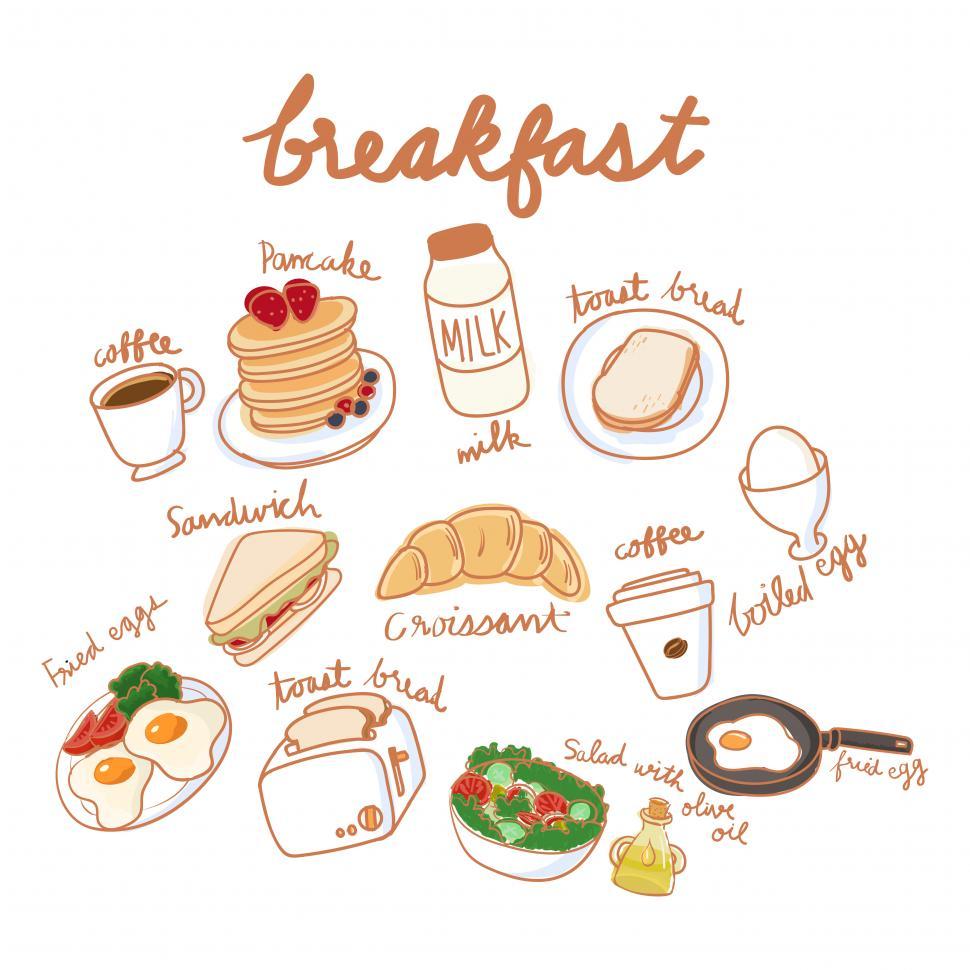 breakfast
Pancake
MILK
milk
toast bread
coffee
Sandwich
Croissant
coffee
boiled egg
Fried eggs
toast bread
Salad with
olive
oil
fried egg